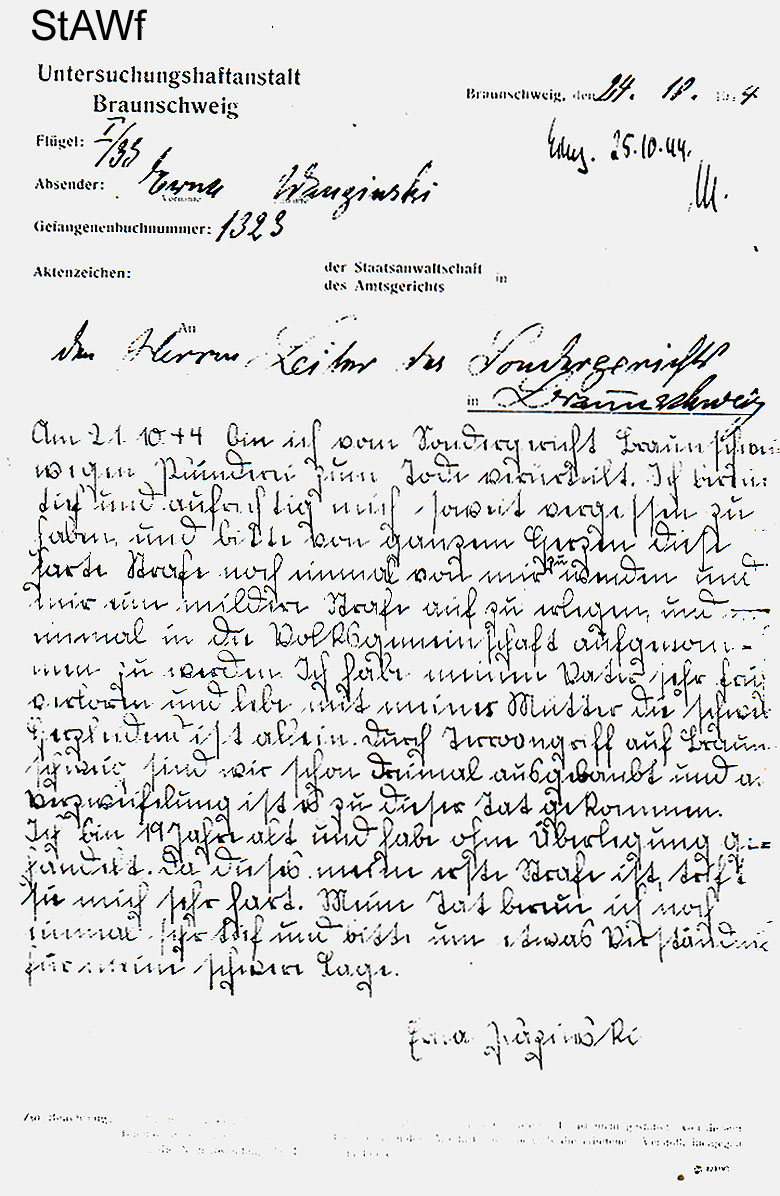 StAWf
Untersuchungshaftanstalt
Braunschweig
Braunschweig, den 24. 10. 1944
Flügel: I/33
Eing. 25.10.44.
Absender: Erna Wazinski
Vorname
Gefangenenbuchnummer: 1323
Aktenzeichen:
der Staatsanwaltschaft
des Amtsgerichts
in
An
den Herrn Leiter des Sondergerichts
in Braunschweig
Am 21.10.44 bin ich vom Sondergericht Braunschwei
wegen Plünderei zum Tode verurteilt. Ich bereue
tief und aufrichtig mich soweit vergessen zu
haben, und bitte von ganzem Herzen diese
harte Strafe noch einmal von mir zu wenden und
mir eine mildere Strafe auf zu erlegen, und
einmal in die Volksgemeinschaft aufgenom-
men zu werden. Ich habe meinen Vater sehr früh
verloren und lebe mit meiner Mutter die schwer
Herzleidend ist allein. Durch Terrorangriff auf Braun
schweig sind wir schon dreimal ausgebombt und a.
Verzweifelung ist es zu dieser Tat gekommen.
Ich bin 19 Jahre alt und habe ohne Überlegung ge=
handelt. Da dieses meine erste Strafe ist, trift
sie mich sehr hart. Meine Tat bereue ich noch
einmal sehr tief und bitte um etwas Verständnis
für meine schwere Lage.
Erna Wazinski
Zur Beachtung: